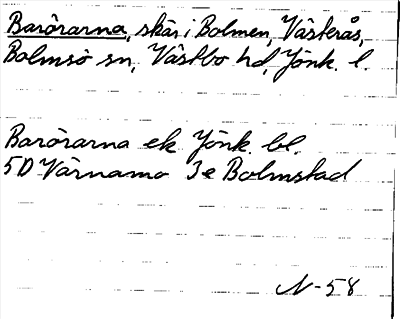 Barörarna, skär i Bolmen, Västerås,
Bolmsö sn, Västbo hd, Jönk. l.
Barörarna ek. Jönk. bl.
5D Värnamo 3e Bolmstad
N-58